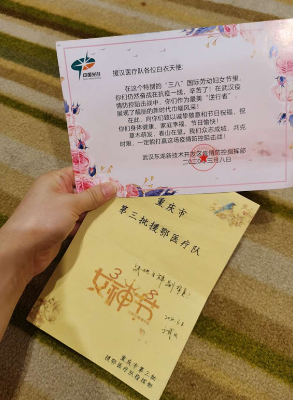 中国光谷
援汉医疗队各位白衣天使：
在这个特别的“三八”国际劳动妇女节里，
你们仍然奋战在抗疫一线，辛苦了！在此次疫
情防控阻击战中，你们作为最美“逆行者”
展现了新时代巾帼风采！
在此，向你们致以诚挚敬意和节日祝福，祝
你们身体健康，家庭幸福，节日愉快！
草木萌发，春山在望。我们众志成城，共克
时艰，一定能打赢这场疫情防控阻击战！
武汉东湖新技术开发区疫情防控指挥部
二〇二〇年三月八日
重庆市
第三批援鄂医疗队
女神节
重庆市第三批
援鄂医疗队指挥部